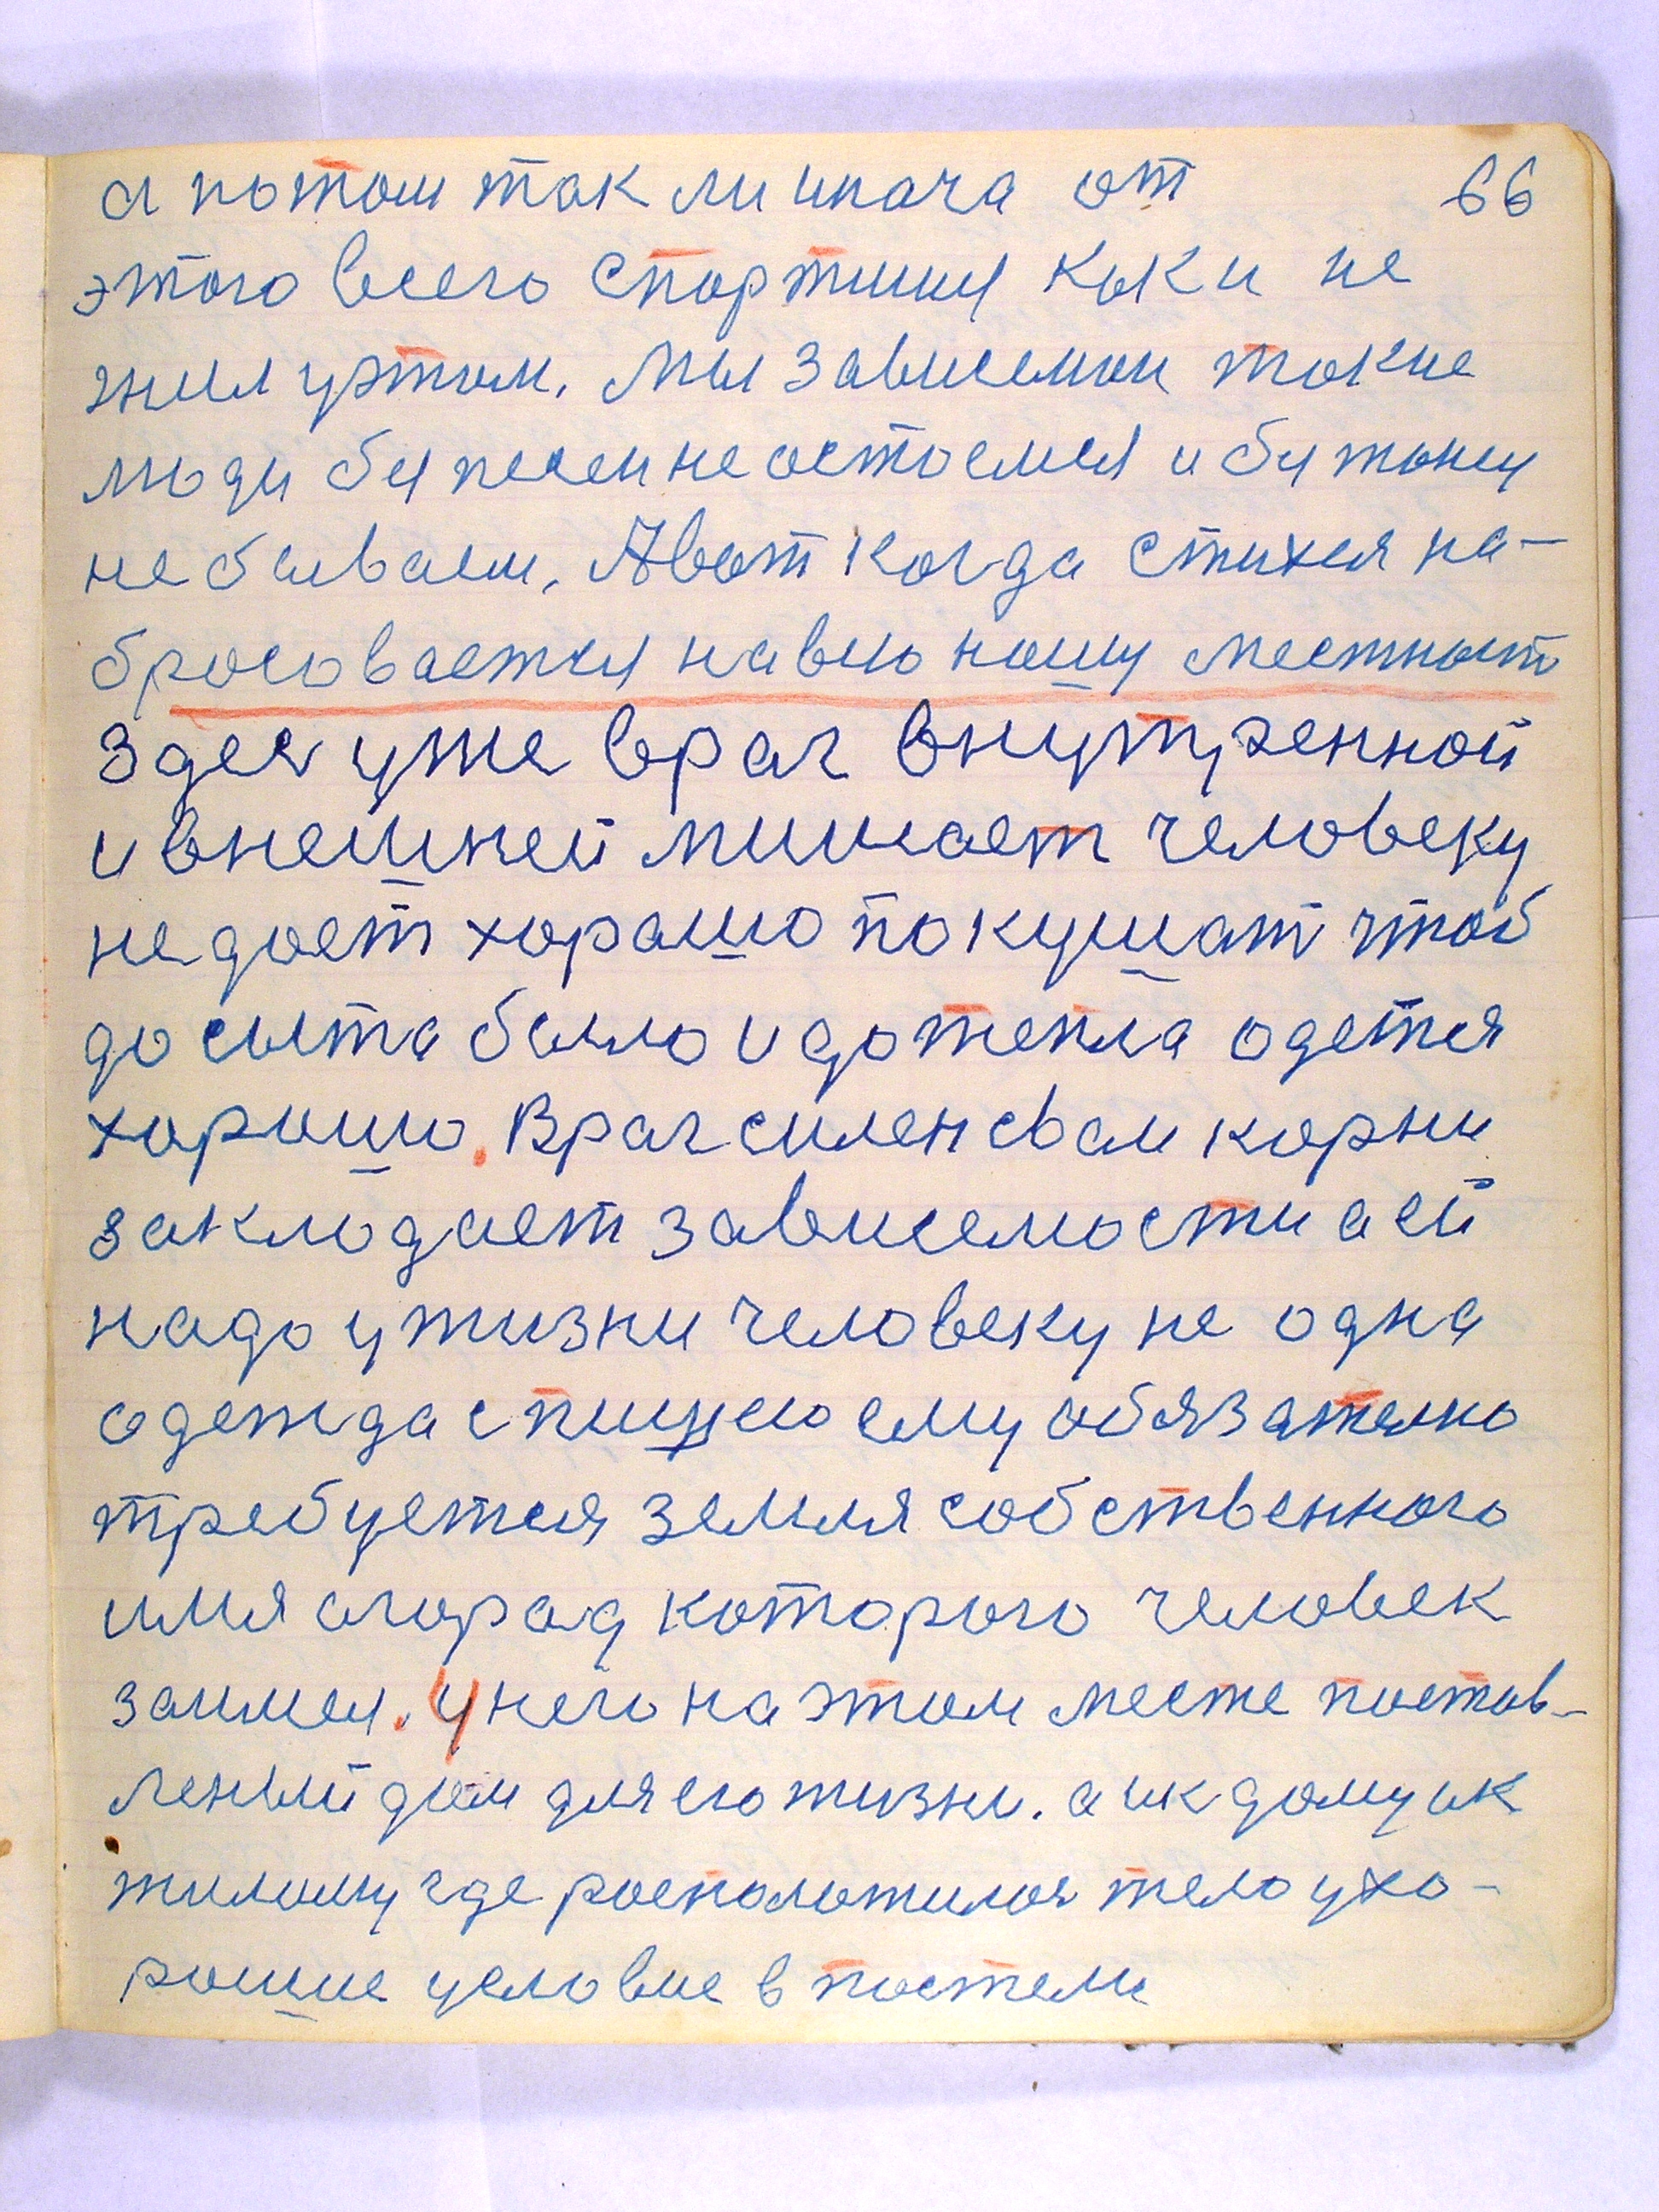 а потом так ли инача от 66
этого всего спортишся как и не
жил у этом. Мы зависемаи такие
люди бу песеи не остоемся и бу тону
не бываем. А вот когда стихея на-
бросовается на всю нашу местност
здея уже враг внутренной
и внешней мишает человеку
не дает хорашо покушат чтоб
до сыта было и до тепла одется
хорошо. Враг силен свои корни
заклодает зависемости а ей
надо у жизни человеку не одна
одежда с пищею ему обязателно
требуется земля собственного
имя огорад которого человек
занмея. у него на этом месте постав-
леный дом для его жизни. а и к дому и к
жилому где росположился тело у хо-
рошие условие в постели